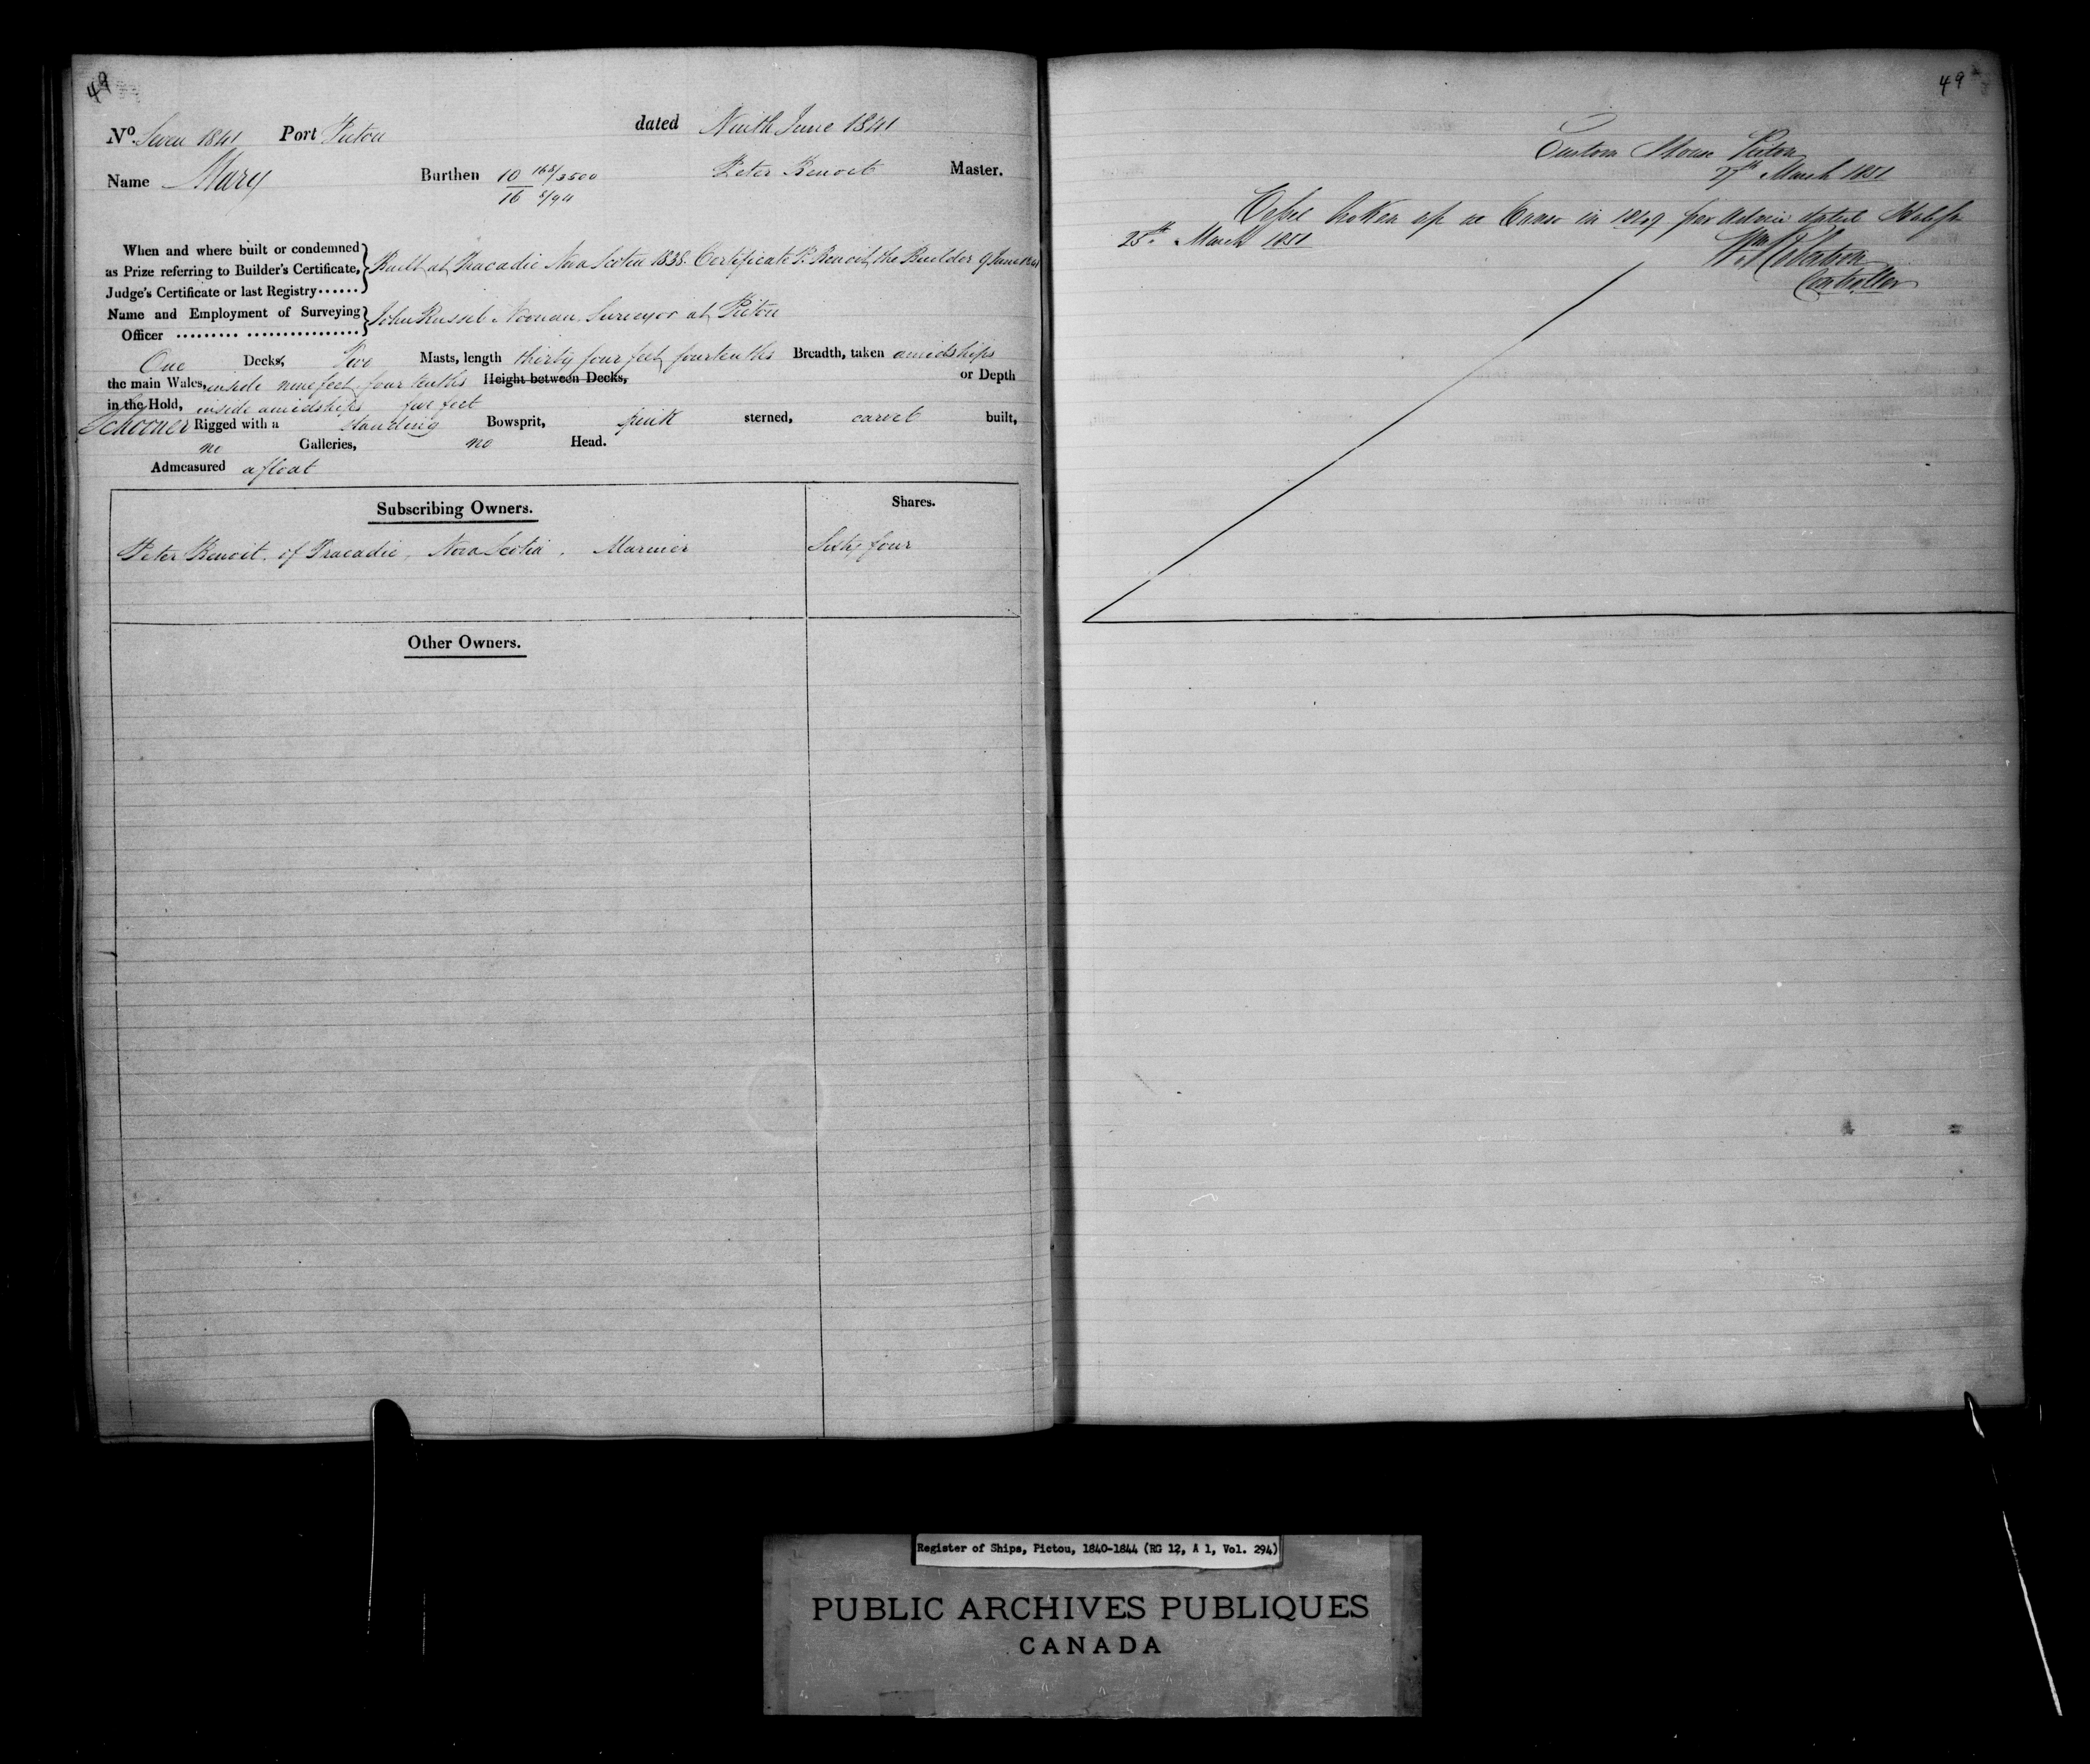 49
No. Seven 1841 Port Pictou dated Ninth June 1841
Name Mary Burthen 10 168/3500 Peter Benoit Master.
16 8/94
When and where built or condemned
as Prize referring to Builder's Certificate,
Judge's Certificate or last Registry......
Built at Tracadie Nova Scotia 1838. Certificate P. Benoit, the Builder 9 June 1841
Name and Employment of Surveying
Officer ......... ..................
John Russel Noonan Surveyor at Pictou
One Decks, Two Masts, length thirty four feet, four tenths Breadth, taken amidships
the main Wales, inside nine feet four tenths Height between Decks, or Depth
in the Hold, inside amidships five feet
Schooner Rigged with a standing Bowsprit, pink sterned, carvel built,
no Galleries, no Head.
Admeasured afloat
Subscribing Owners. Shares.
Peter Benoit of Tracadie, Nova Scotia. Mariner Sixty four
Other Owners.
49
Custom House Pictou
27th March 1851
Vessel broken up at Canso in 1849 per advice dated Halifax
25th March 1851
Controller
Register of Ships, Pictou, 1840-1844 (RG 12, A 1, Vol. 294)
PUBLIC ARCHIVES PUBLIQUES
CANADA